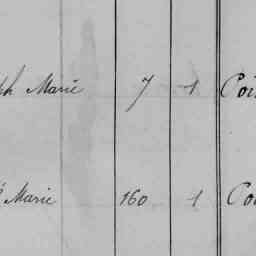 ph Marie 7 1 Poi
Marie 160 1 Po